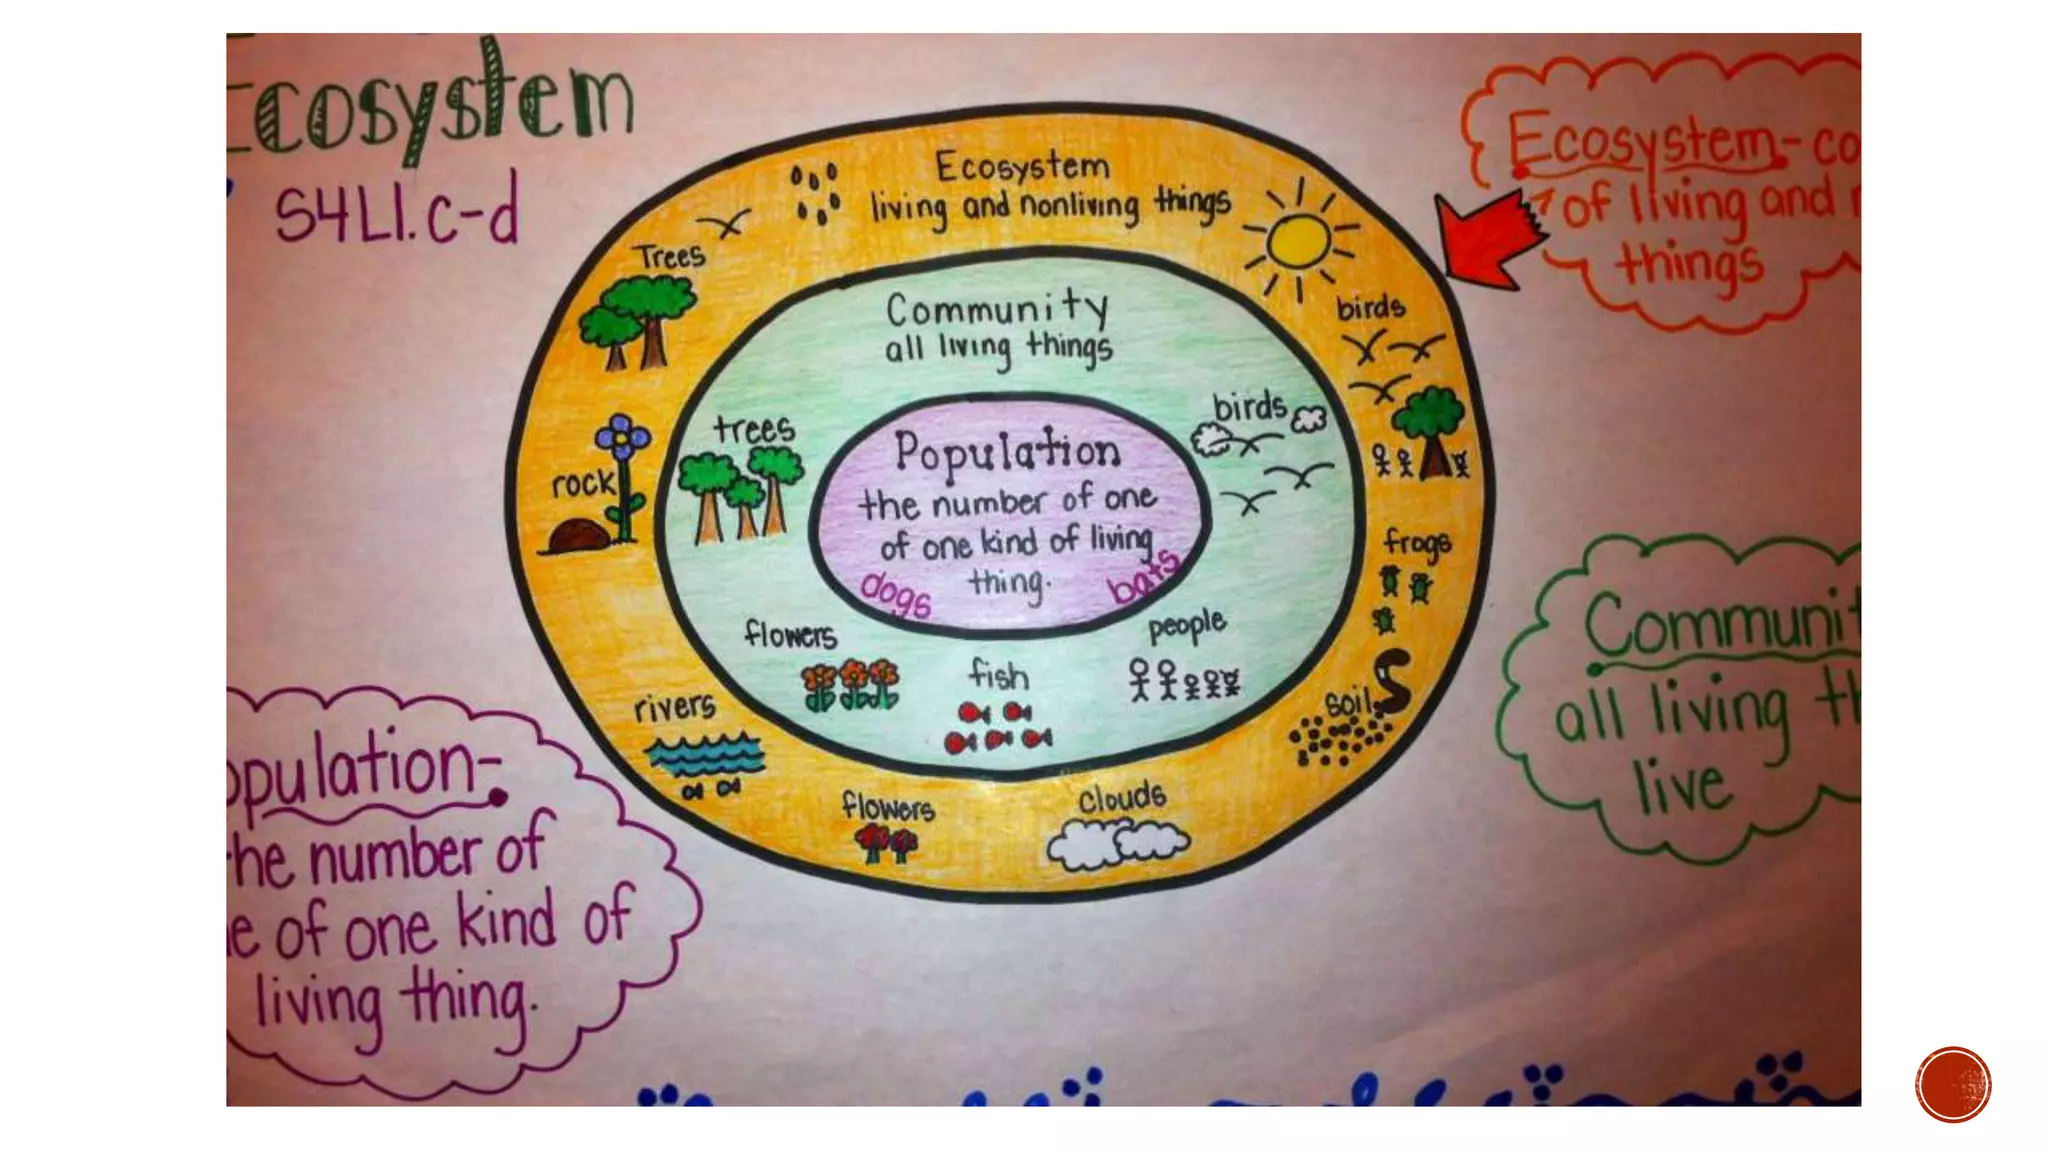 Ecosystem
S4L1.c-d
Ecosystem
living and nonliving things
Trees
birds
rock
frogs
rivers
soil
flowers
clouds
Community
all living things
trees
birds
flowers
fish
people
Population
the number of one
of one kind of living
thing.
dogs
bats
Ecosystem- co
of living and n
things
Communit
all living th
live
opulation-
the number of
e of one kind of
living thing.